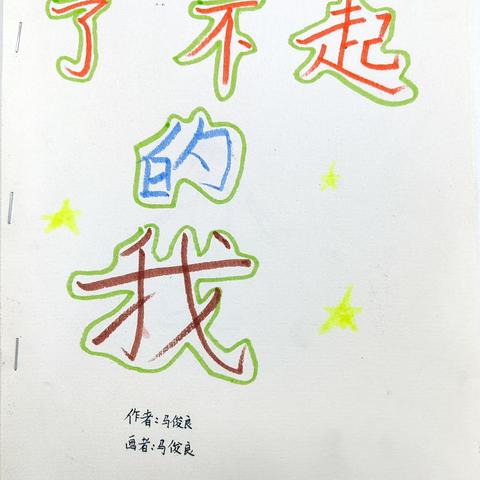 了不起
的
我
作者:马俊良
画者:马俊良